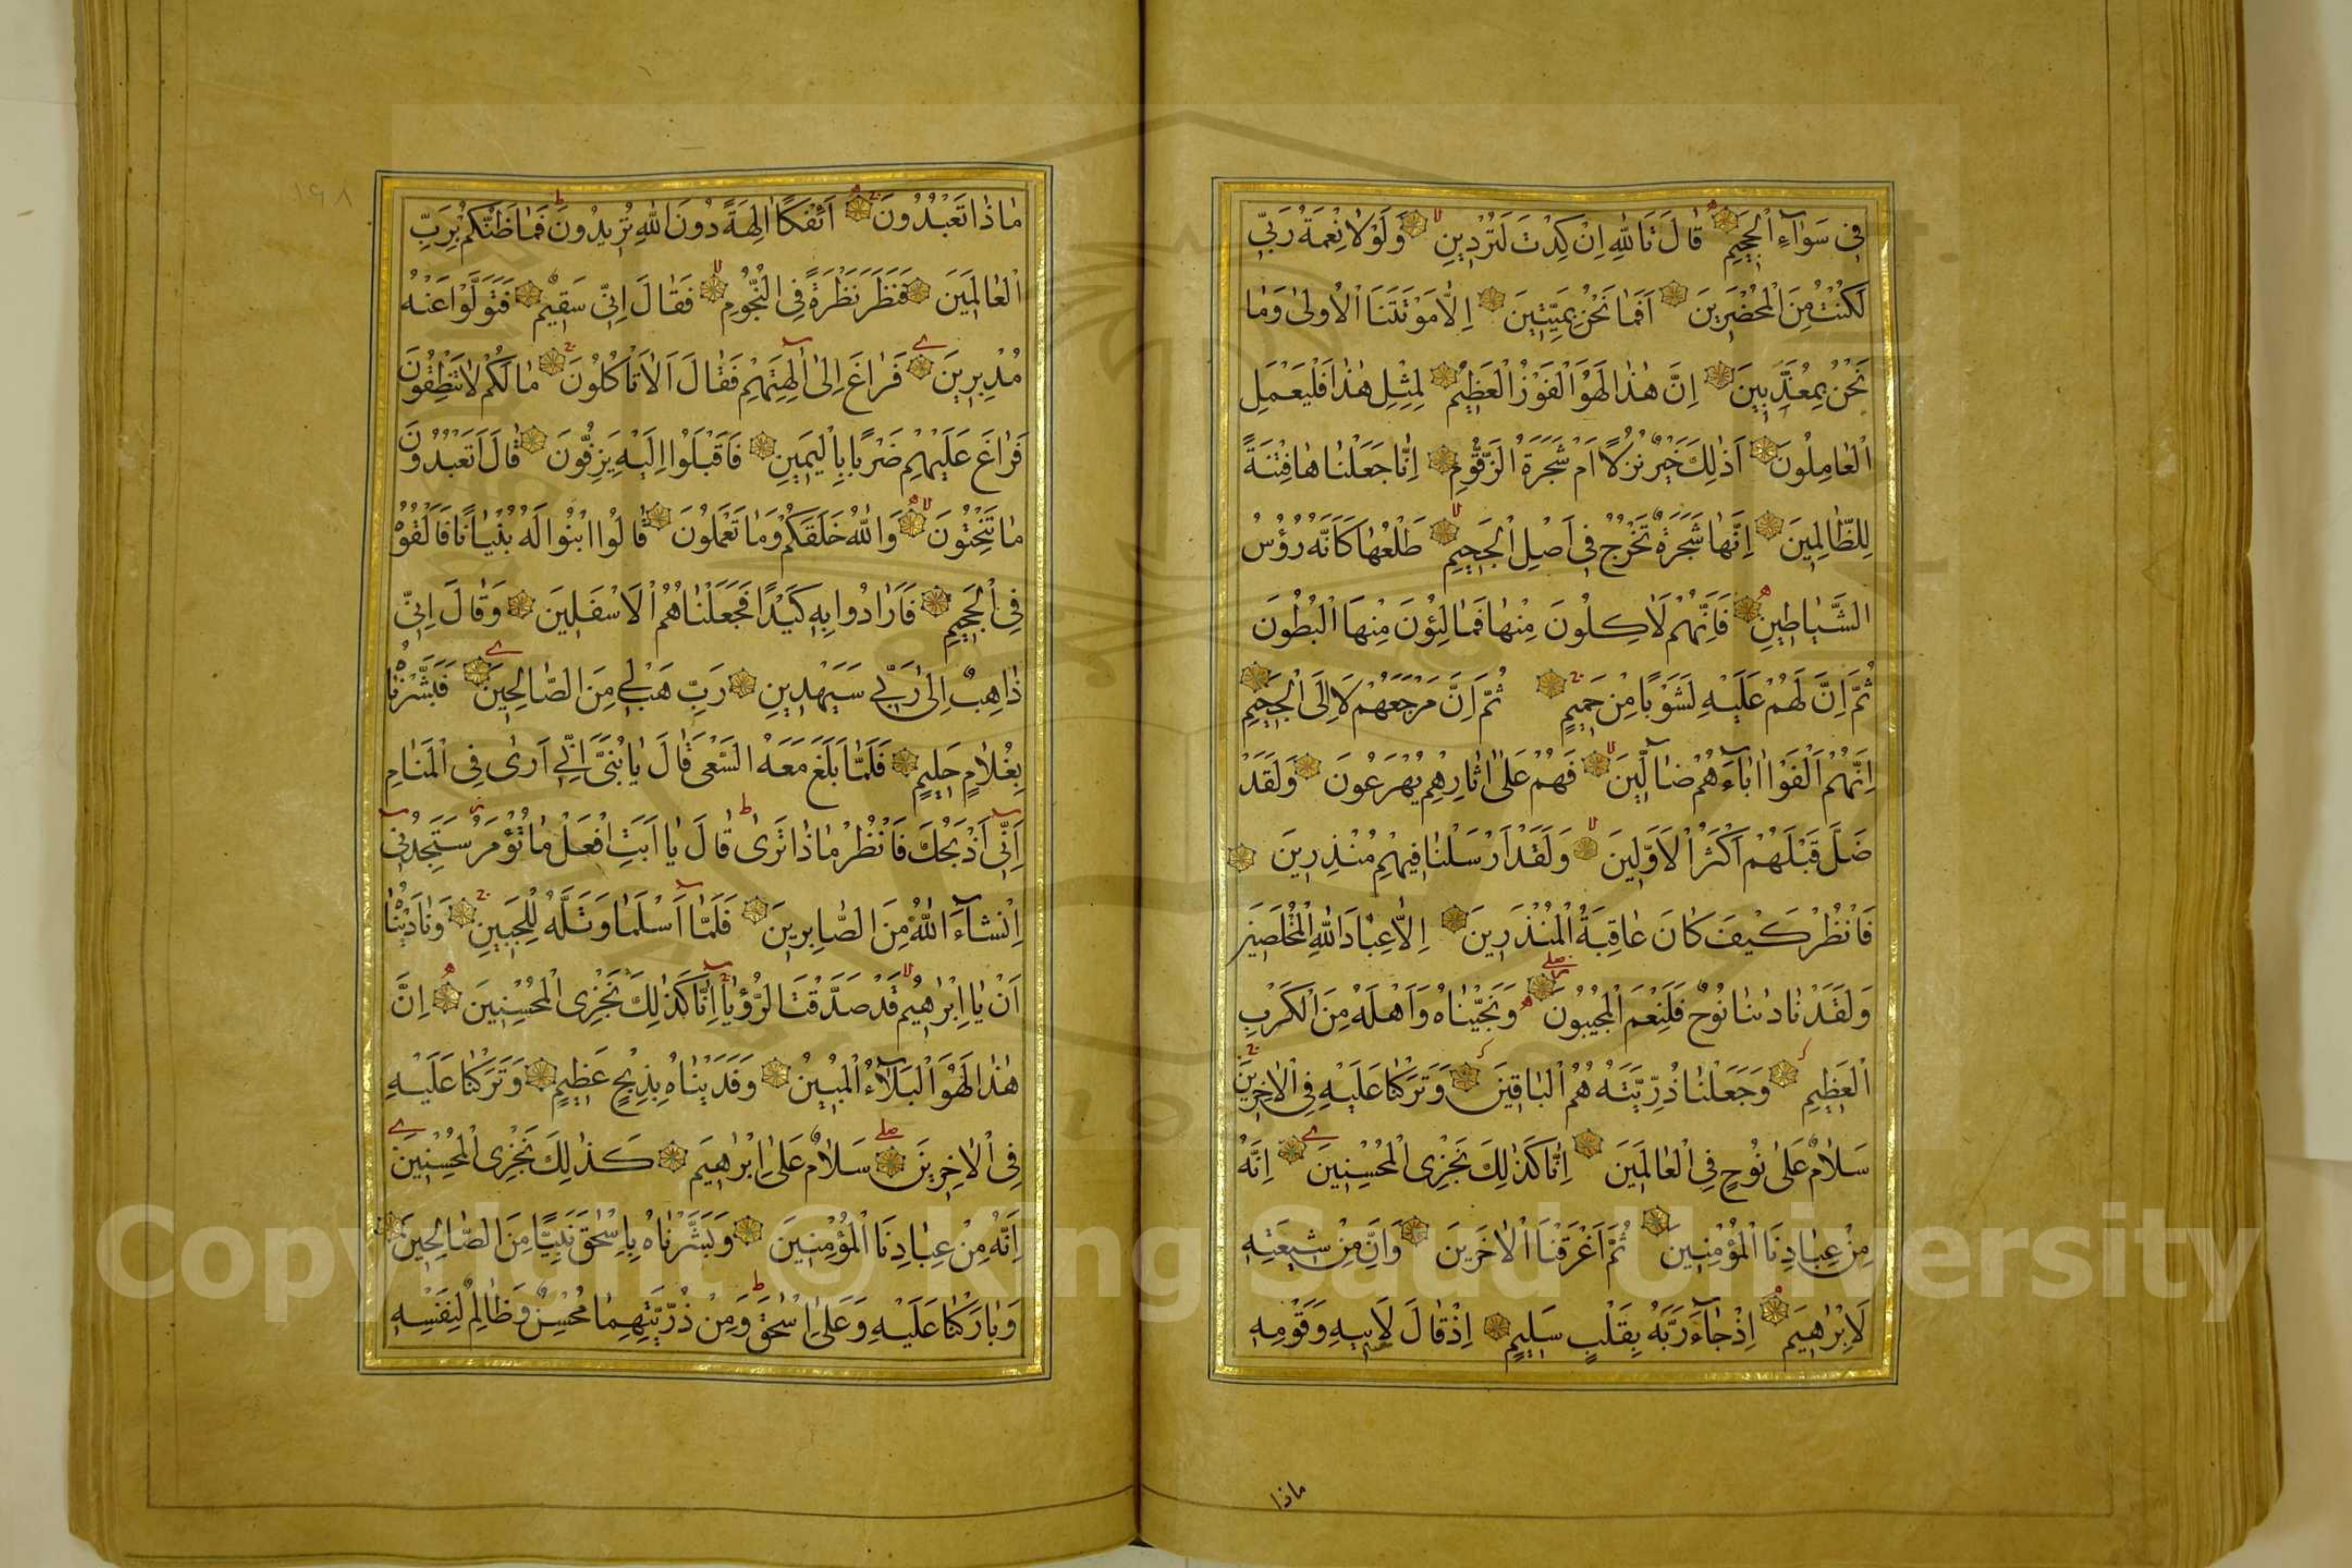 فِي سَوَآءِ الْجَحِيمِ قَالَ تَاللّٰهِ اِنْ كِدْتَ لَتُرْدِينِ وَلَوْلَا نِعْمَةُ رَبِّي
لَكُنْتُ مِنَ الْمُحْضَرِينَ اَفَمَا نَحْنُ بِمَيِّتِينَ اِلَّا مَوْتَتَنَا الْاُولٰى وَمَا
نَحْنُ بِمُعَذَّبِينَ اِنَّ هٰذَا لَهُوَ الْفَوْزُ الْعَظِيمُ لِمِثْلِ هٰذَا فَلْيَعْمَلِ
الْعَامِلُونَ اَذٰلِكَ خَيْرٌ نُزُلًا اَمْ شَجَرَةُ الزَّقُّومِ اِنَّا جَعَلْنَاهَا فِتْنَةً
لِلظَّالِمِينَ اِنَّهَا شَجَرَةٌ تَخْرُجُ فِي اَصْلِ الْجَحِيمِ طَلْعُهَا كَاَنَّهُ رُؤُسُ
الشَّيَاطِينِ فَاِنَّهُمْ لَاٰكِلُونَ مِنْهَا فَمَالِئُونَ مِنْهَا الْبُطُونَ
ثُمَّ اِنَّ لَهُمْ عَلَيْهَا لَشَوْبًا مِنْ حَمِيمٍ ثُمَّ اِنَّ مَرْجِعَهُمْ لَاِلَى الْجَحِيمِ
اِنَّهُمْ اَلْفَوْا اٰبَآءَهُمْ ضَآلِّينَ فَهُمْ عَلٰى اٰثَارِهِمْ يُهْرَعُونَ وَلَقَدْ
ضَلَّ قَبْلَهُمْ اَكْثَرُ الْاَوَّلِينَ وَلَقَدْ اَرْسَلْنَا فِيهِمْ مُنْذِرِينَ
فَانْظُرْ كَيْفَ كَانَ عَاقِبَةُ الْمُنْذَرِينَ اِلَّا عِبَادَ اللّٰهِ الْمُخْلَصِينَ
وَلَقَدْ نَادٰينَا نُوحٌ فَلَنِعْمَ الْمُجِيبُونَ وَنَجَّيْنَاهُ وَاَهْلَهُ مِنَ الْكَرْبِ
الْعَظِيمِ وَجَعَلْنَا ذُرِّيَّتَهُ هُمُ الْبَاقِينَ وَتَرَكْنَا عَلَيْهِ فِي الْاٰخِرِينَ
سَلَامٌ عَلٰى نُوحٍ فِي الْعَالَمِينَ اِنَّا كَذٰلِكَ نَجْزِي الْمُحْسِنِينَ اِنَّهُ
مِنْ عِبَادِنَا الْمُؤْمِنِينَ ثُمَّ اَغْرَقْنَا الْاٰخَرِينَ وَاِنَّ مِنْ شِيعَتِهِ
لَاِبْرٰهِيمَ اِذْ جَآءَ رَبَّهُ بِقَلْبٍ سَلِيمٍ اِذْ قَالَ لِاَبِيهِ وَقَوْمِهِ
ماذا
مَاذَا تَعْبُدُونَ اَئِفْكًا اٰلِهَةً دُونَ اللّٰهِ تُرِيدُونَ فَمَا ظَنُّكُمْ بِرَبِّ
الْعَالَمِينَ فَنَظَرَ نَظْرَةً فِي النُّجُومِ فَقَالَ اِنِّي سَقِيمٌ فَتَوَلَّوْا عَنْهُ
مُدْبِرِينَ فَرَاغَ اِلٰى اٰلِهَتِهِمْ فَقَالَ اَلَا تَاْكُلُونَ مَا لَكُمْ لَا تَنْطِقُونَ
فَرَاغَ عَلَيْهِمْ ضَرْبًا بِالْيَمِينِ فَاَقْبَلُوا اِلَيْهِ يَزِفُّونَ قَالَ اَتَعْبُدُونَ
مَا تَنْحِتُونَ وَاللّٰهُ خَلَقَكُمْ وَمَا تَعْمَلُونَ قَالُوا ابْنُوا لَهُ بُنْيَانًا فَاَلْقُوهُ
فِي الْجَحِيمِ فَاَرَادُوا بِهِ كَيْدًا فَجَعَلْنَاهُمُ الْاَسْفَلِينَ وَقَالَ اِنِّي
ذَاهِبٌ اِلٰى رَبِّي سَيَهْدِينِ رَبِّ هَبْ لِي مِنَ الصَّالِحِينَ فَبَشَّرْنَاهُ
بِغُلَامٍ حَلِيمٍ فَلَمَّا بَلَغَ مَعَهُ السَّعْيَ قَالَ يَا بُنَيَّ اِنِّي اَرٰى فِي الْمَنَامِ
اَنِّي اَذْبَحُكَ فَانْظُرْ مَاذَا تَرٰى قَالَ يَا اَبَتِ افْعَلْ مَا تُؤْمَرُ سَتَجِدُنِي
اِنْ شَآءَ اللّٰهُ مِنَ الصَّابِرِينَ فَلَمَّا اَسْلَمَا وَتَلَّهُ لِلْجَبِينِ وَنَادَيْنَاهُ
اَنْ يَا اِبْرٰهِيمُ قَدْ صَدَّقْتَ الرُّؤْيَا اِنَّا كَذٰلِكَ نَجْزِي الْمُحْسِنِينَ اِنَّ
هٰذَا لَهُوَ الْبَلٰٓؤُا الْمُبِينُ وَفَدَيْنَاهُ بِذِبْحٍ عَظِيمٍ وَتَرَكْنَا عَلَيْهِ
فِي الْاٰخِرِينَ سَلَامٌ عَلٰى اِبْرٰهِيمَ كَذٰلِكَ نَجْزِي الْمُحْسِنِينَ
اِنَّهُ مِنْ عِبَادِنَا الْمُؤْمِنِينَ وَبَشَّرْنَاهُ بِاِسْحٰقَ نَبِيًّا مِنَ الصَّالِحِينَ
وَبَارَكْنَا عَلَيْهِ وَعَلٰى اِسْحٰقَ وَمِنْ ذُرِّيَّتِهِمَا مُحْسِنٌ وَظَالِمٌ لِنَفْسِهِ
١٩٨
Copyright © King Saud University